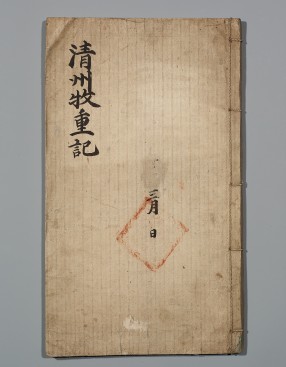 清州牧重記
二月 日